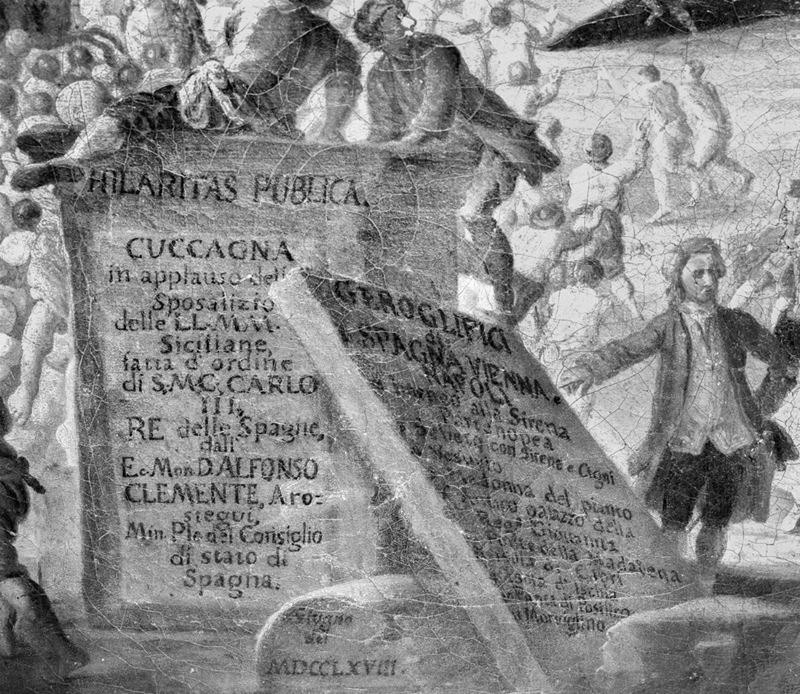 HILARITAS PUBLICA.
CUCCAGNA
in applauso dello
Sposalizio
delle LL.M.M.
Siciliane,
fatta d'ordine
di S.M.C. CARLO
III,
RE delle Spagne,
dall'
Ec. Mon. D. ALFONSO
CLEMENTE, Aro=
stegui,
Min. Ple. del Consiglio
di stato di
Spagna.
GEROGLIFICI
di
SPAGNA, VIENNA, e
NAPOLI
alla Sirena
Partenopea
con Sirene e Cigni
Vesuvio
Madonna del pianto
palazzo della
Rega Giovanna
della Madalena
di
di Ischia
di Posilico
Morviglino
Giugno
del
MDCCLXVIII.